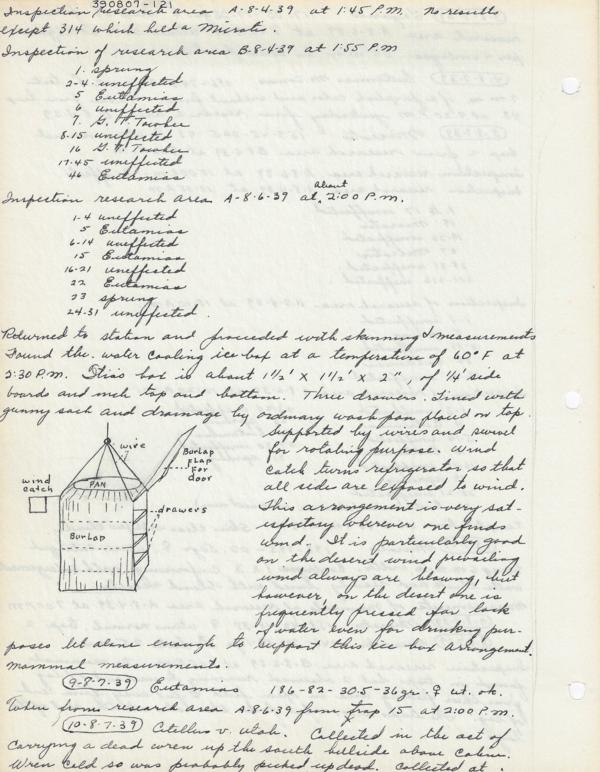 390807-121
Inspection research area A-8-4-39 at 1:45 P.M. No results
except 314 which held a Microtis.
Inspection of research area B-8-4-39 at 1:55 P.M
1. sprung
2-4. uneffected
5 Eutamias
6 uneffected
7. G. T. Towhee
8-15 uneffected
16 G. T. Towhee
17-45 uneffected
46 Eutamias
Inspection research area A-8-6-39 at About 2:00 P.M.
1-4 uneffected
5 Eutamias
6-14 uneffected
15 Eutamias
16-21 uneffected
22 Eutamias
23 sprung
24-31 uneffected.
Returned to station and proceeded with skinning & measurements
Found the water cooling ice box at a temperature of 60°F at
2:30 P.M. This box is about 1½' x 1½' x 2", of ¼' side
boards and top and bottom. Three drawers. Lined with
gunny sack and drainage by ordinary wash pan placed on top.
Supported by wires and swivel
for rotating purpose. Wind
catch turns refrigerator so that
all side are exposed to wind.
This arrangement is very sat-
isfactory wherever one finds
wind. It is particularly good
on the desert wind prevailing
wind always are blowing, but
however, on the desert one is
frequently pressed for lack
of water even for drinking pur-
poses let alone enough to support this ice box arrangement.
wire
Burlap
Flap
For
door
wind
catch
PAN
drawers
Burlap
Mammal measurements.
9-8-7-39 Eutamias 186-82-30.5-36gr. ♀ ut. ok.
Taken from research area A-8-6-39 from trap 15 at 2:00 P.M.
10-8-7-39 Citellus v. utah. Collected in the act of
carrying a dead wren up the south hillside above cabin.
Wren cold so was probably picked up dead. Collected at